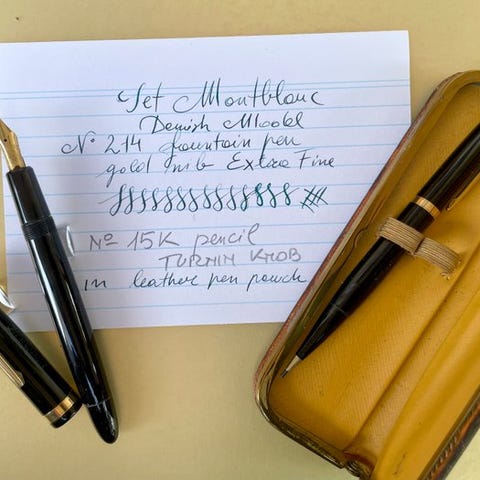 Set Montblanc
Danish Model
N° 214 fountain pen
gold nib Extra Fine
N° 15K pencil
TURNIN KNOB
in leather pen pouch